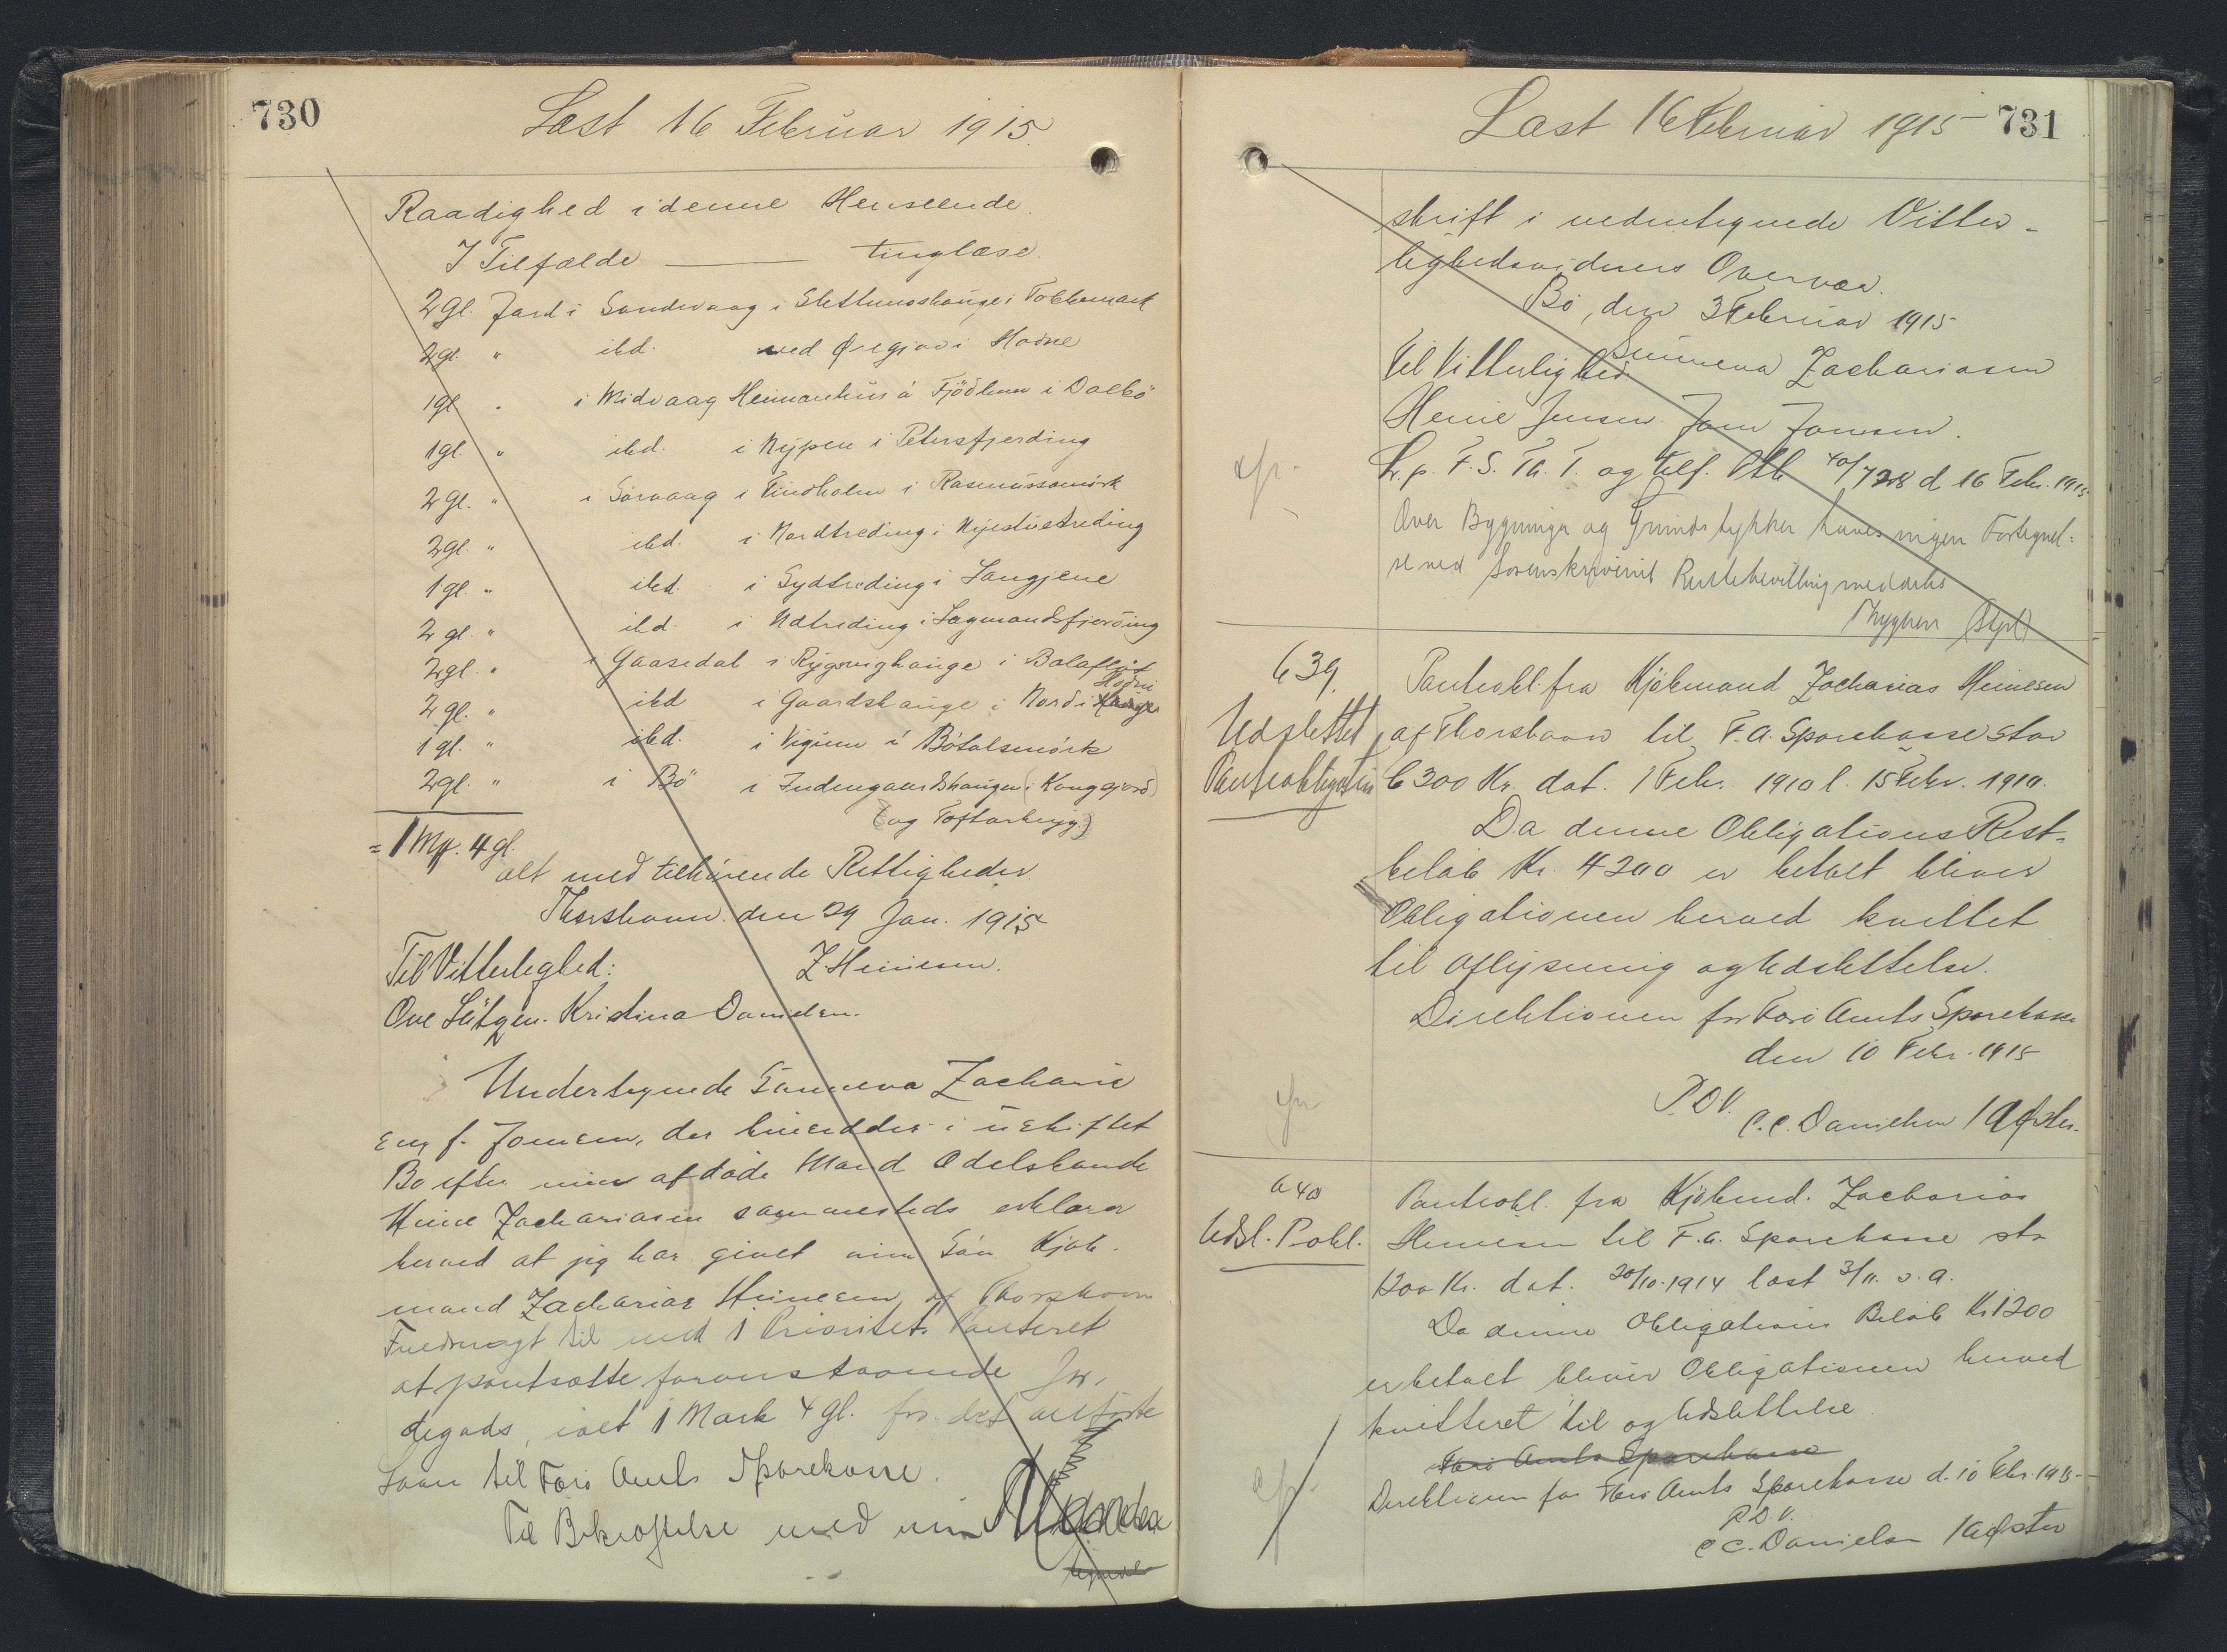 730
Læst 16 Februar 1915.
Raadighed i denne Henseende.
I Tilfælde ——— tinglæse.
2 gl. Jord i Sandevaag i Slettunoshauge i Tokkemark
2 gl. " ibd. ved Øregjov i Horne
1 gl. " i Midvaag Heimanhus á Fjödlum i Dalbö
1 gl. " ibd. i Nýpen i Petersfjerding
2 gl. " i Sörvaag i Tindholm i Rasmussamörk
2 gl. " ibd. i Nordtreding i Nýestustreding
1 gl. " ibd. i Sydtreding i Langjene
2 gl. " ibd. i Udtreding i Lagmandsfjerding
2 gl. " i Gaasedal i Rygsvighauge i Balafløtt
Horni
2 gl. " ibd i Gaardshauge i Nord i
1 gl. " ibd. i Vigum i Bótolsmörk
2 gl. " i Bö i Indengaardshaugen (Kongsjord)
(og Toftarhejg)
= 1 Mk. 4 gl.
alt med tilhörende Rettigheder
Thorshavn den 29 Jan. 1915
Til Vitterlighed: Z Heinesen.
Ove Lützen. Kristina Danielsen.
Undertegnede Sunneva Zacharia
sen f. Joensen, der hensidder i uskiftet
Bo efter min afdöde Mand Odelsbonde
Heine Zachariasen sammesteds erklærer
herved at jeg har givet min Sön Kjöb-
mand Zacharias Heinesen af Thorshavn
Fuldmagt til med 1 Prioritets Panteret
at pantsætte foranstaaende Jor-
degods, ialt 1 Mark 4 gl. for det anförte
Laan til Færö Amts Sparekasse.
Til Bekræftelse med min
Læst 16 Februar 1915 731
skrift i undertegnede Vitter-
lighedsvidners Overvær.
Bö, den 3 Februar 1915
Sunneva Zachariasen
Til Vitterlighed.
Heine Jensen. Joen Joensen.
L. p. F. S. Th. T. og tilf. Atk 40/728 d 16 Febr. 1915
Over Bygninger og Grundstykker haves ingen Fortegnel-
se ved Sorenskriveriet Rentebevilling meddelt
(Stpl)
639.
Udslettet
Panteobligation
Panteobl. fra Kjöbmand Zacharias Heinesen
af Thorshavn til F. A. Sparekasse stor
6300 Kr. dat. 1 Febr. 1910 l. 15 Febr. 1910.
Da denne Obligations Rest-
belöb Kr. 4200 er betalt bliver
Obligationen herved kvittet
til Aflysning og Udslettelse.
Direktionen for Færö Amts Sparekasse
den 10 Febr. 1915
P. D. V.
C. C. Danielsen /
640
Udsl. P.obl.
Panteobl. fra Kjöbmd. Zacharias
Heinesen til F. A. Sparekasse st.
1200 Kr. dat. 30/10. 1914 læst 3/11. s. A.
Da denne Obligations Belöb Kr 1200
er betalt bliver Obligationen herved
kvitteret til og Udslettelse
Færö Amts Sparekasse
Direktionen for Færö Amts Sparekasse d. 10 Febr. 1915
P. D. V.
C C. Danielsen /